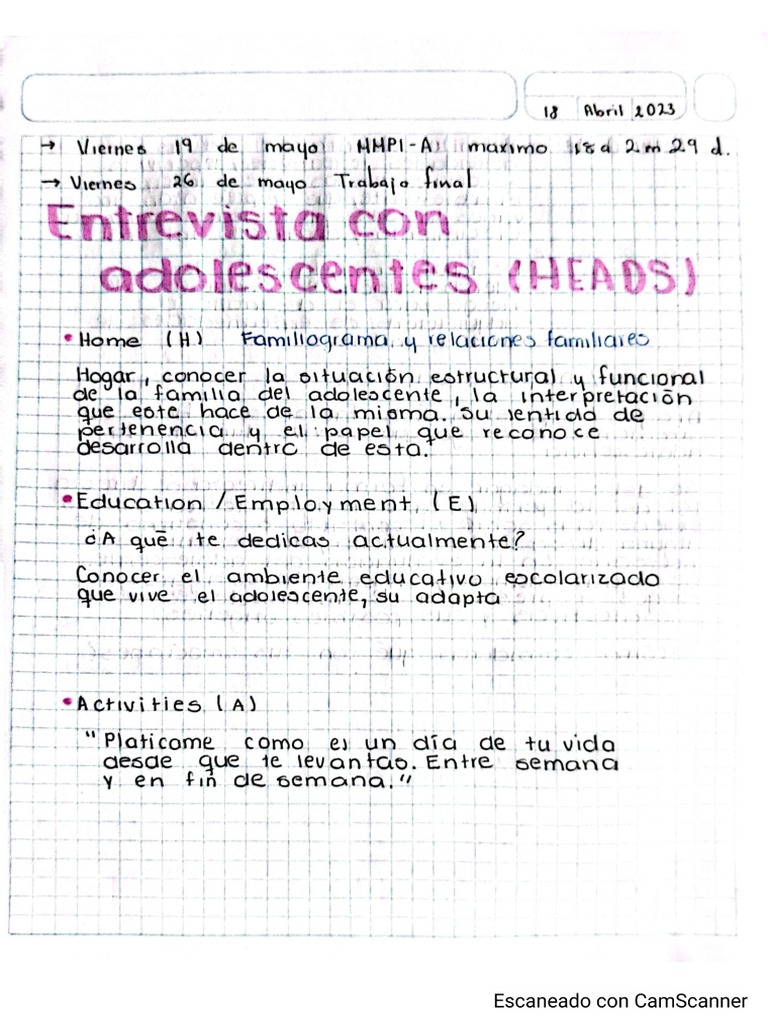 18 Abril 2023
→ Viernes 19 de mayo MMPI-A maximo 18 a 2 m 29 d.
→ Viernes 26 de mayo Trabajo final
Entrevista con
adolescentes (HEADS)
• Home (H) Familiograma y relaciones familiares
Hogar, conocer la situación estructural y funcional
de la familia del adolescente, la interpretación
que este hace de la misma. su sentido de
pertenencia y el papel que reconoce
desarrolla dentro de esta.
• Education / Employment (E)
¿A qué te dedicas actualmente?
Conocer el ambiente educativo escolarizado
que vive el adolescente, su adapta
• Activities (A)
"Platicame como es un día de tu vida
desde que te levantas. Entre semana
y en fin de semana."
Escaneado con CamScanner